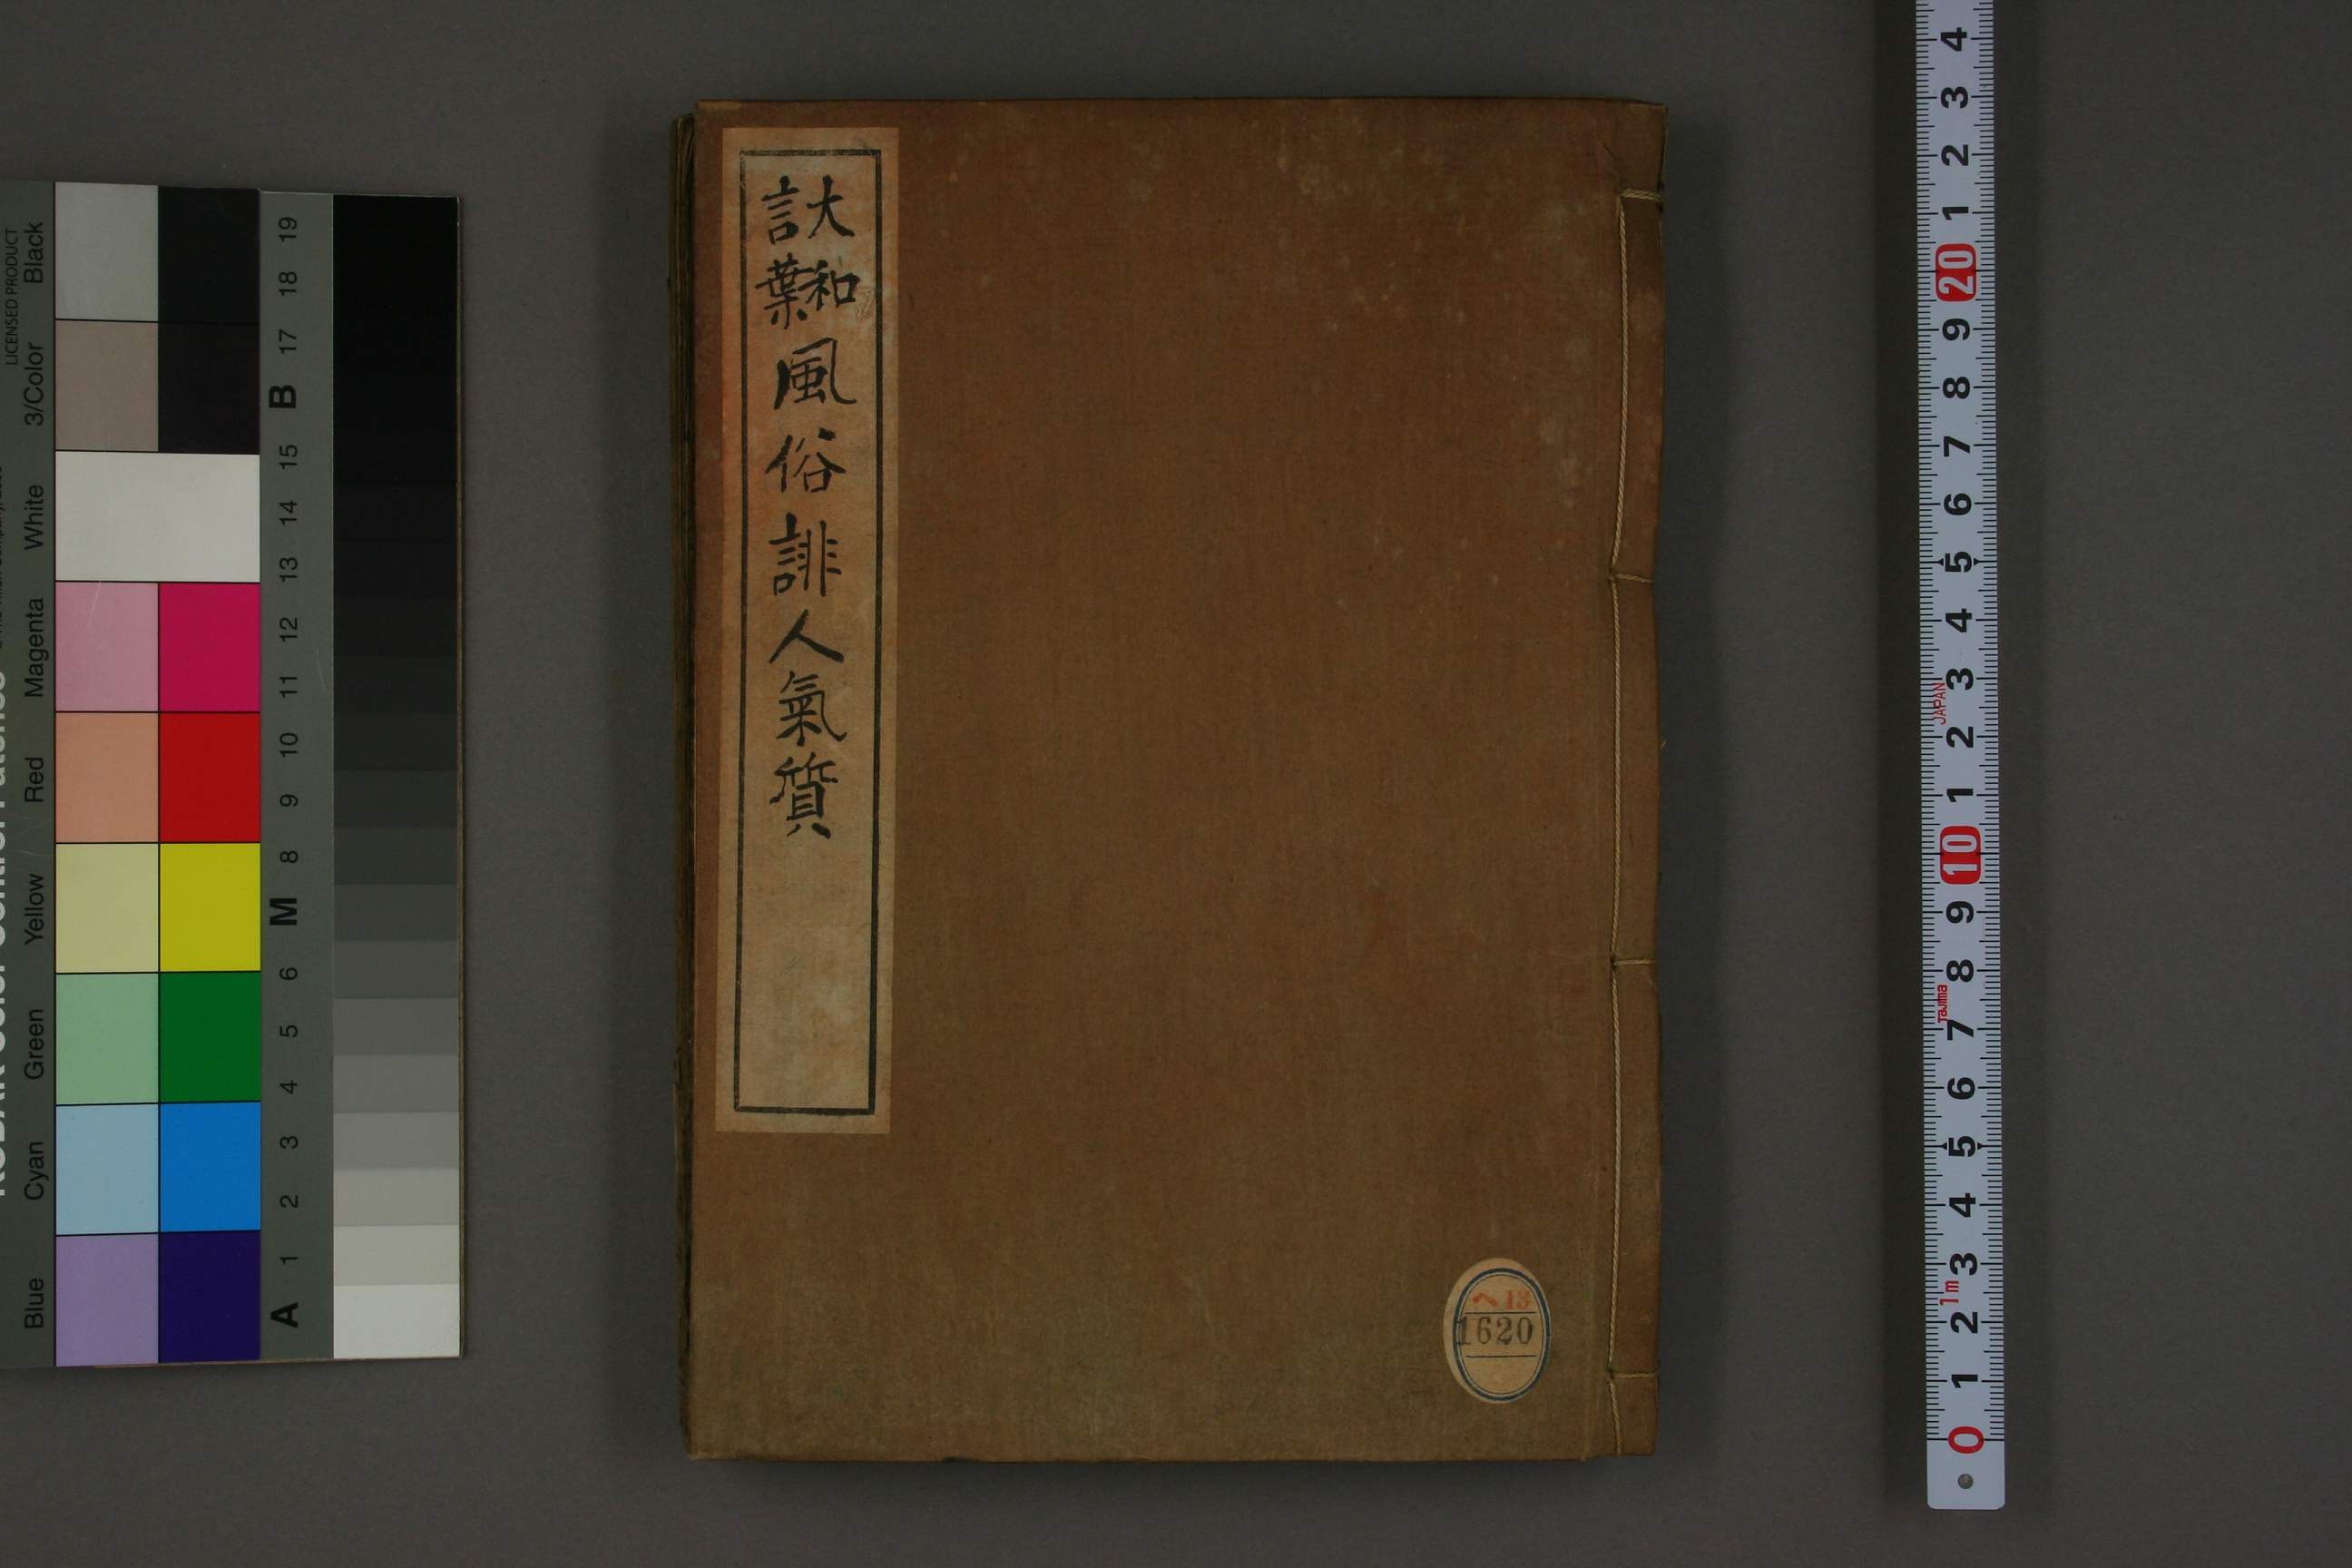 大和言葉
風俗誹人氣質
ヘ13
1620
LICENSED PRODUCT
Black
3/Color
White
Magenta
Red
Yellow
Green
Cyan
Blue
19
18
17
B
15
14
13
12
11
10
9
8
M
6
5
4
3
2
1
A
4
3
2
1
20
9
8
7
6
5
4
3
JAPAN
2
1
10
9
8
Tajima
7
6
5
4
3
1m
2
1
0